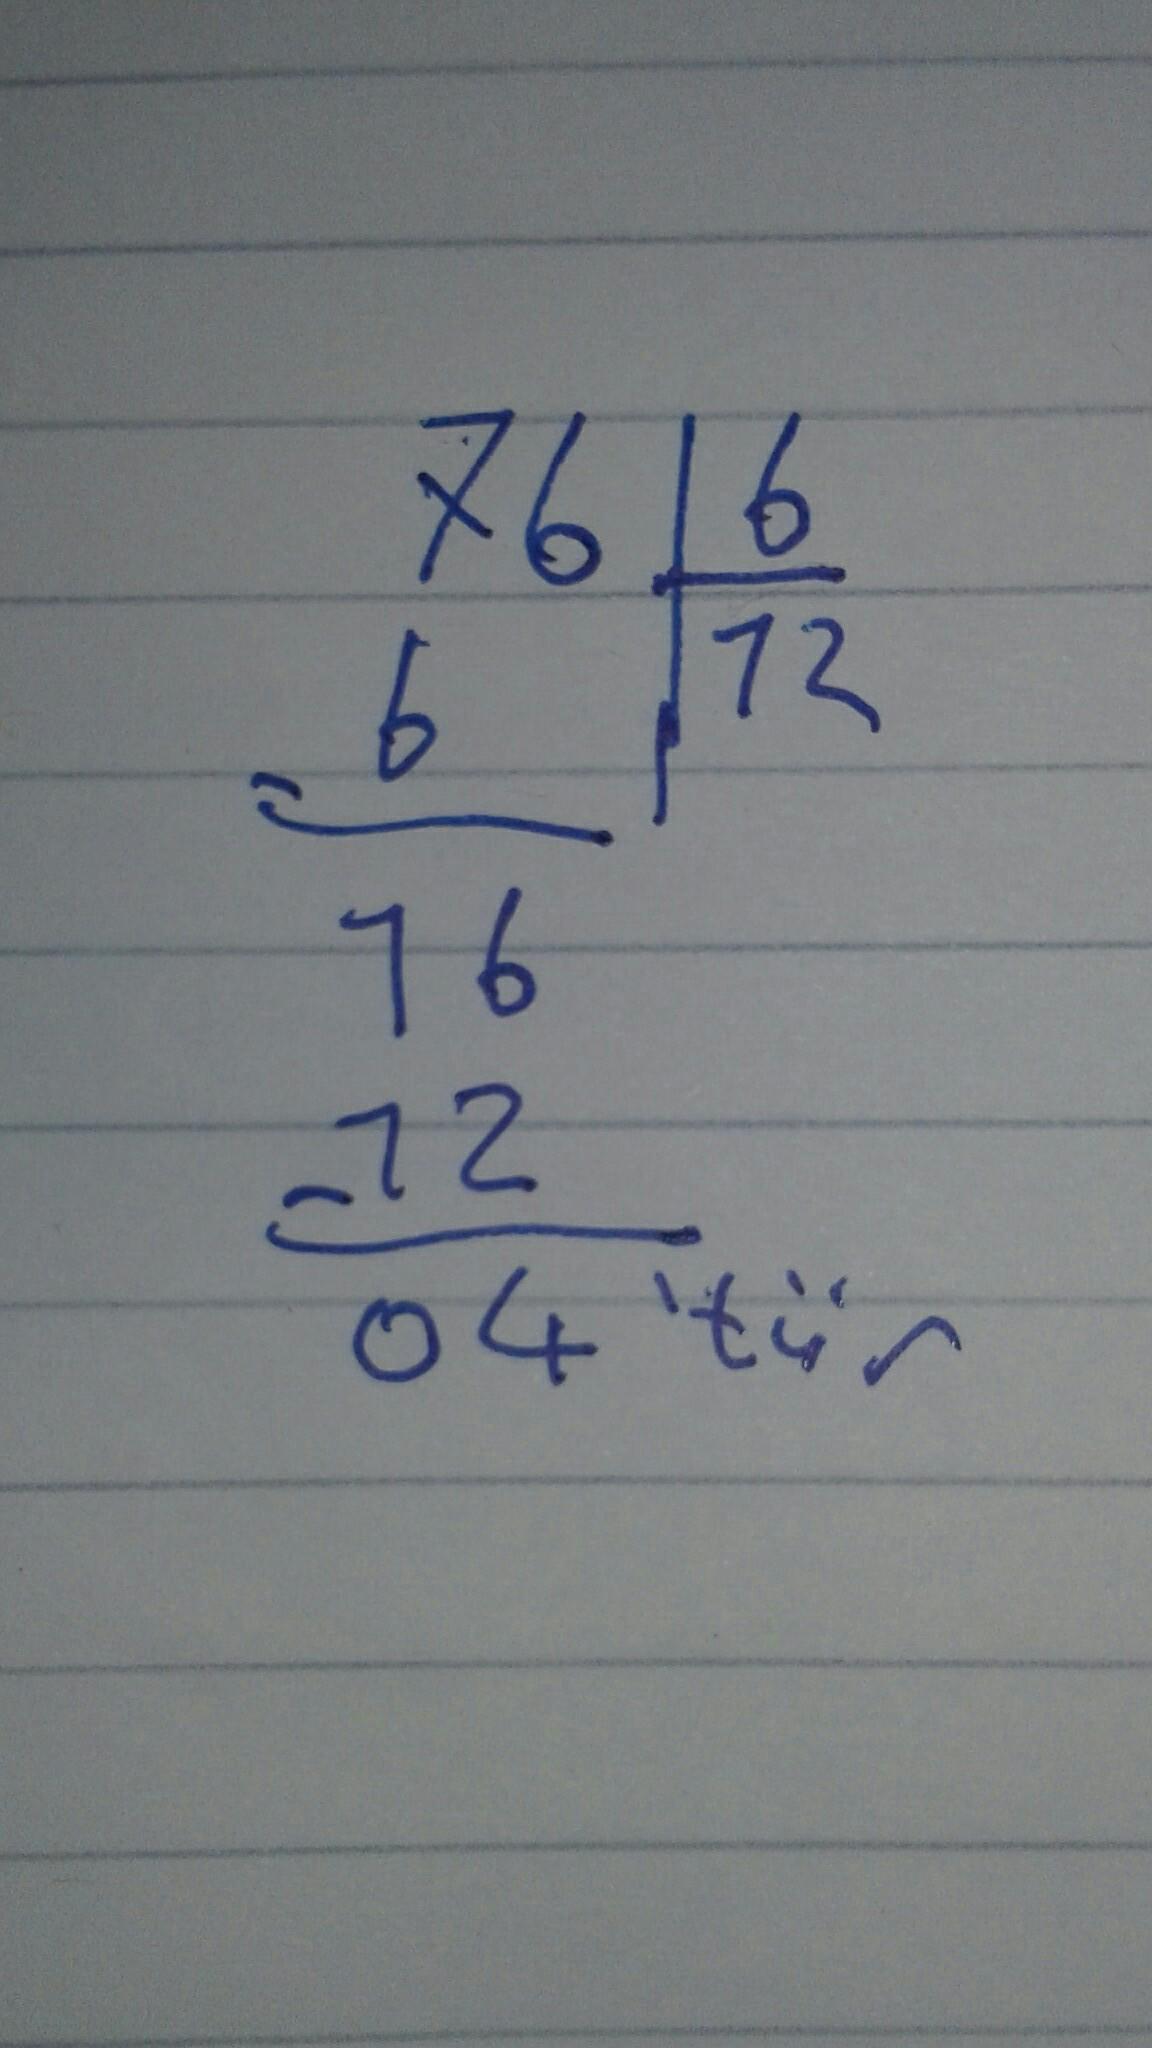 76 | 6
6 | 12
-
16
-12
04 'tür